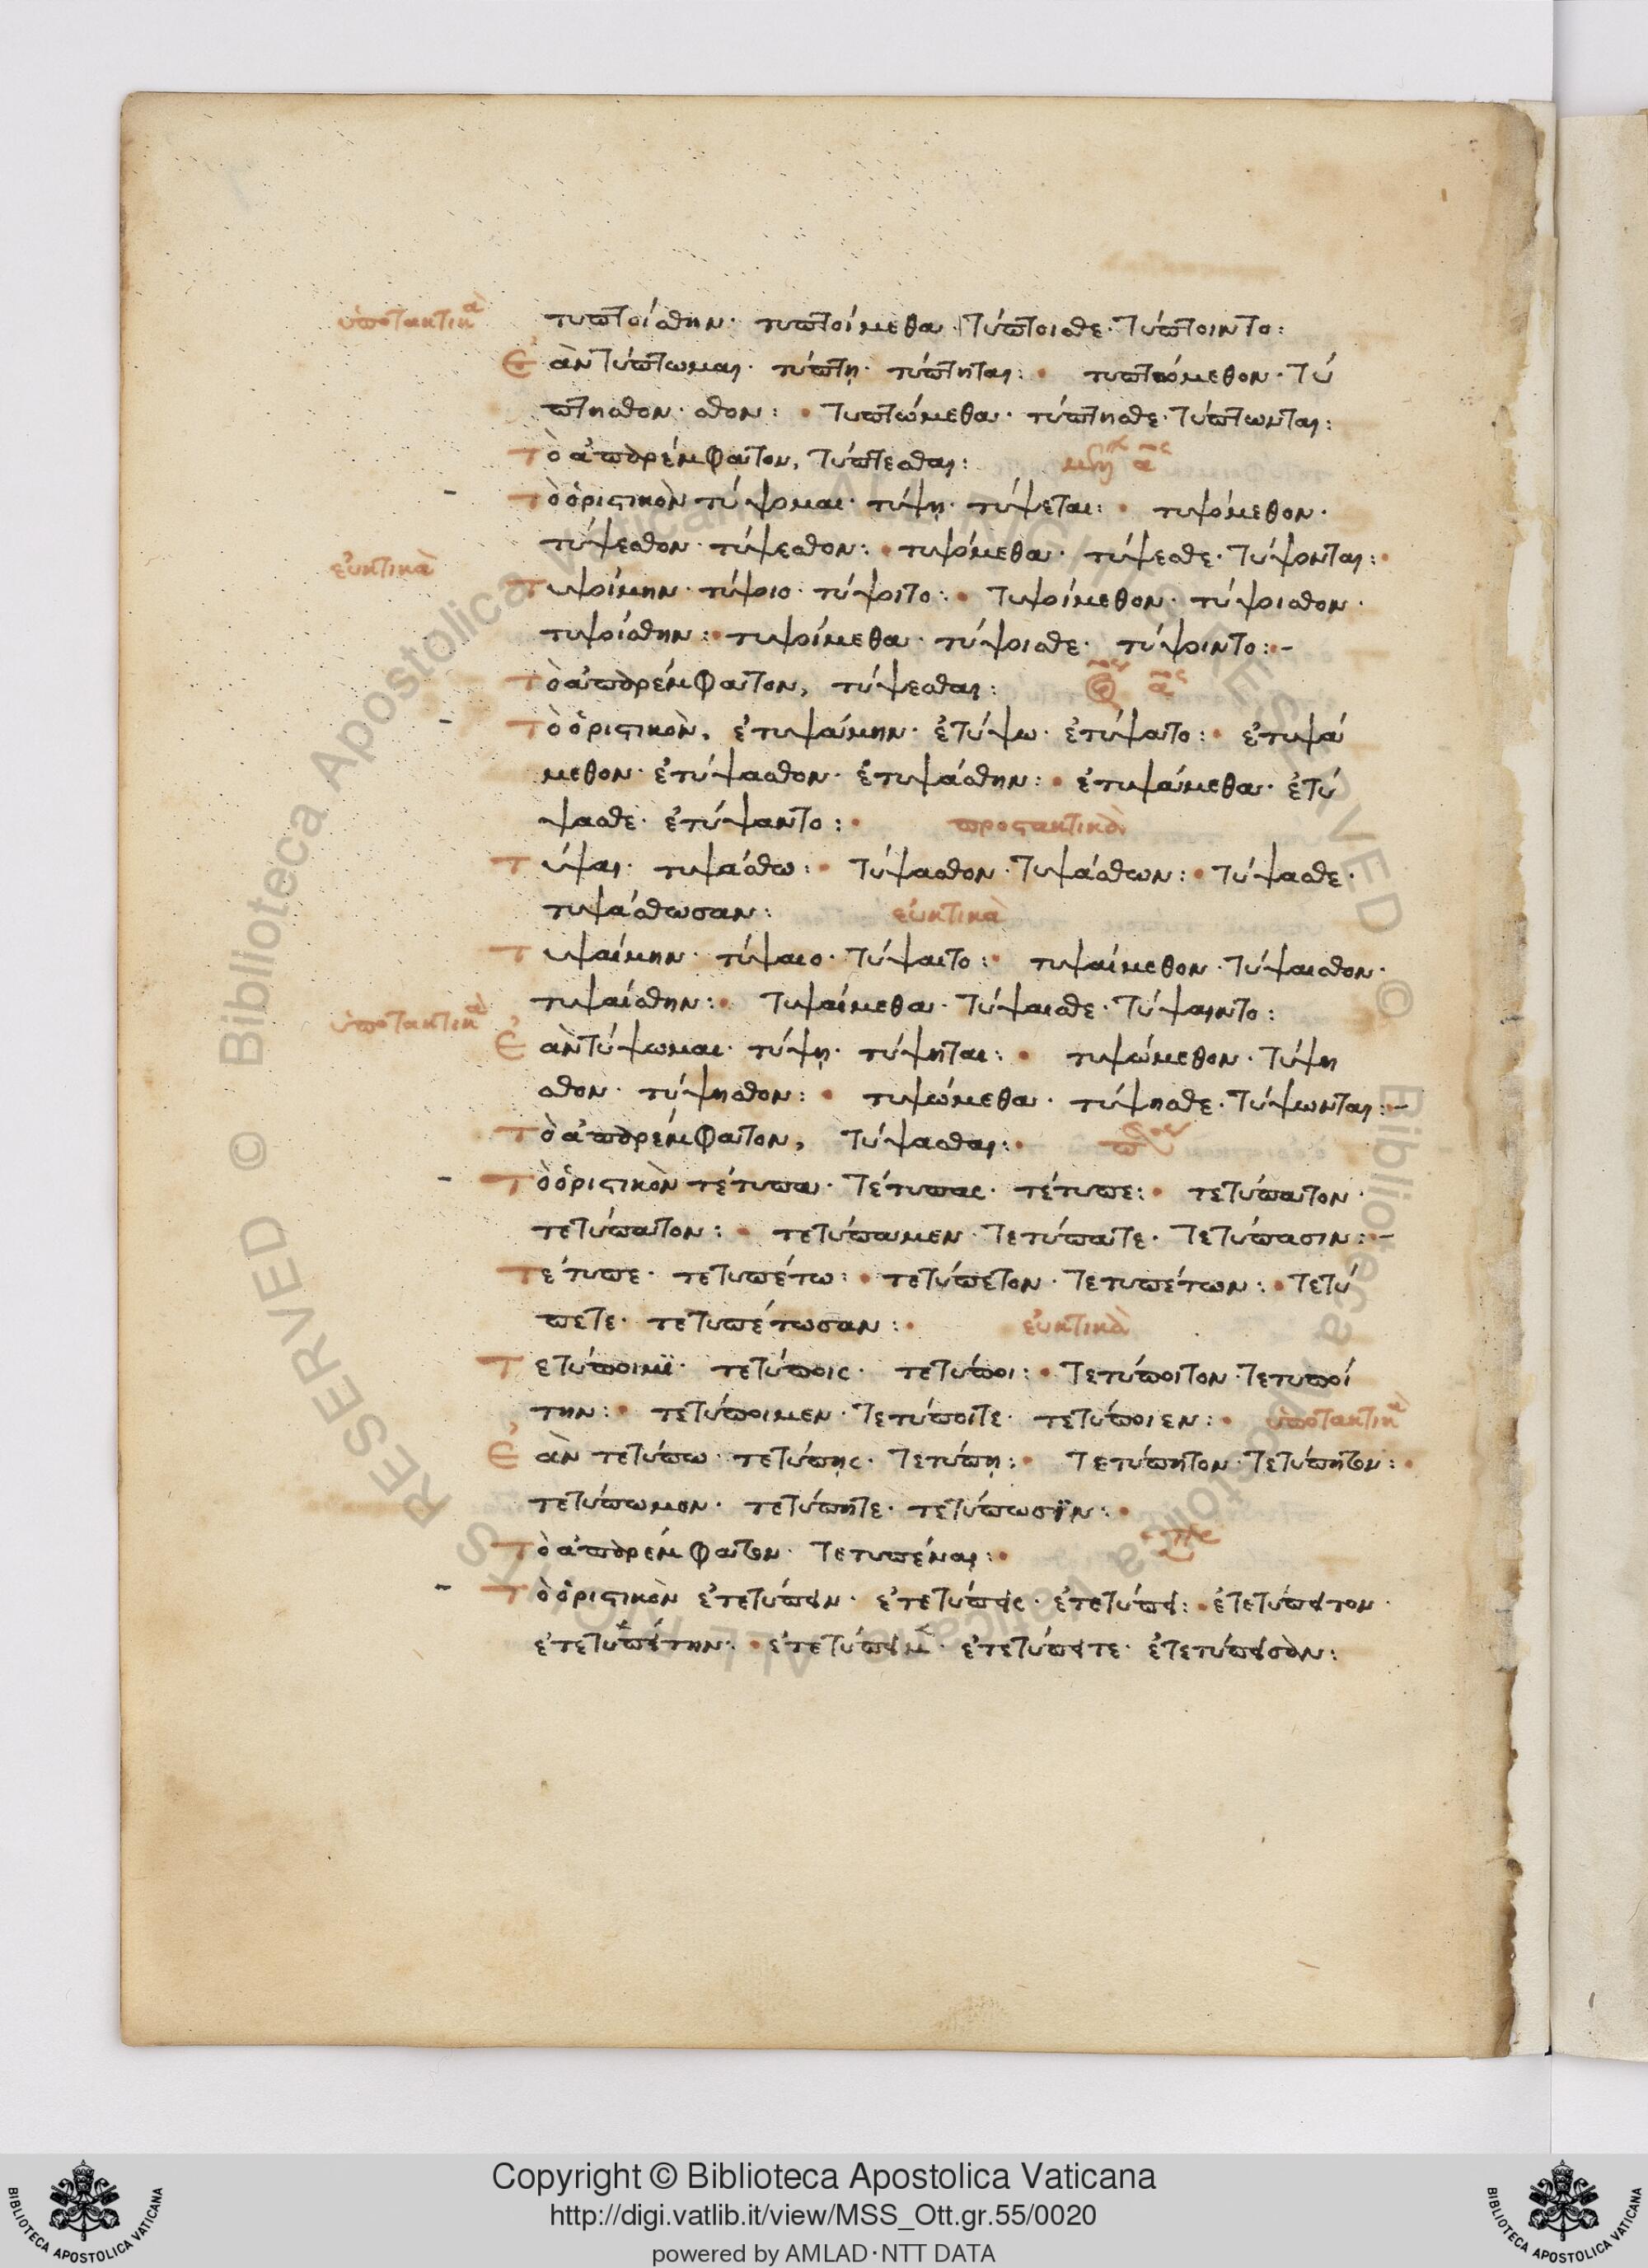 ὑποτακτικὰ
τυπτοίσθην· τυπτοίμεθα· τύπτοισθε· τύπτοιντο:
Ἐὰν τύπτωμαι· τύπτη· τύπτηται: τυπτόμεθον· τύ
πτησθον· σθον: τυπτώμεθα· τύπτησθε· τύπτωνται:
Τὸ ἀπαρέμφατον, τύπτεσθαι:
Τὸ ὁριστικὸν τύψομαι· τύψη· τύψεται: τυψόμεθον·
τύψεσθον· τύψεσθον: τυψόμεθα· τύψεσθε· τύψονται:
εὐκτικὰ
Τυψοίμην· τύψοιο· τύψοιτο: τυψοίμεθον· τύψοισθον·
τυψοίσθην: τυψοίμεθα· τύψοισθε· τύψοιντο:-
Τὸ ἀπαρέμφατον, τύψεσθαι:
Τὸ ὁριστικὸν, ἐτυψάμην· ἐτύψω· ἐτύψατο: ἐτυψά
μεθον· ἐτύψασθον· ἐτυψάσθην: ἐτυψάμεθα· ἐτύ
ψασθε· ἐτύψαντο: προστακτικὰ
Τύψαι· τυψάσθω: τύψασθον· τυψάσθων: τύψασθε·
τυψάσθωσαν: εὐκτικὰ
Τυψαίμην· τύψαιο· τύψαιτο: τυψαίμεθον· τύψαισθον·
τυψαίσθην: τυψαίμεθα· τύψαισθε· τύψαιντο:
ὑποτακτικὰ
Ἐὰν τύψωμαι· τύψη· τύψηται: τυψώμεθον· τύψη
σθον· τύψησθον: τυψώμεθα· τύψησθε· τύψωνται:-
Τὸ ἀπαρέμφατον, τύψασθαι:
Τὸ ὁριστικὸν τέτυπα· τέτυπας· τέτυπε: τετύπατον·
τετύπατον: τετύπαμεν· τετύπατε· τετύπασιν:-
Τέτυπε· τετυπέτω: τετύπετον· τετυπέτων: τετύ
πετε· τετυπέτωσαν: εὐκτικὰ
Τετύποιμϊ· τετύποις· τετύποι: τετύποιτον· τετυποί
την: τετύποιμεν· τετύποιτε· τετύποιεν: ὑποτακτικὰ
Ἐὰν τετύπω· τετύπης· τετύπη: τετύπητον· τετύπητον:
τετύπωμεν· τετύπητε· τετύπωσϊν:
Τὸ ἀπαρέμφατον· τετυπέναι:
Τὸ ὁριστικὸν ἐτετύπειν· ἐτετύπεις· ἐτετύπει: ἐτετύπειτον·
ἐτετυπείτην: ἐτετύπειμεν· ἐτετύπειτε· ἐτετύπεισαν:
Copyright © Biblioteca Apostolica Vaticana
http://digi.vatlib.it/view/MSS_Ott.gr.55/0020
powered by AMLAD·NTT DATA